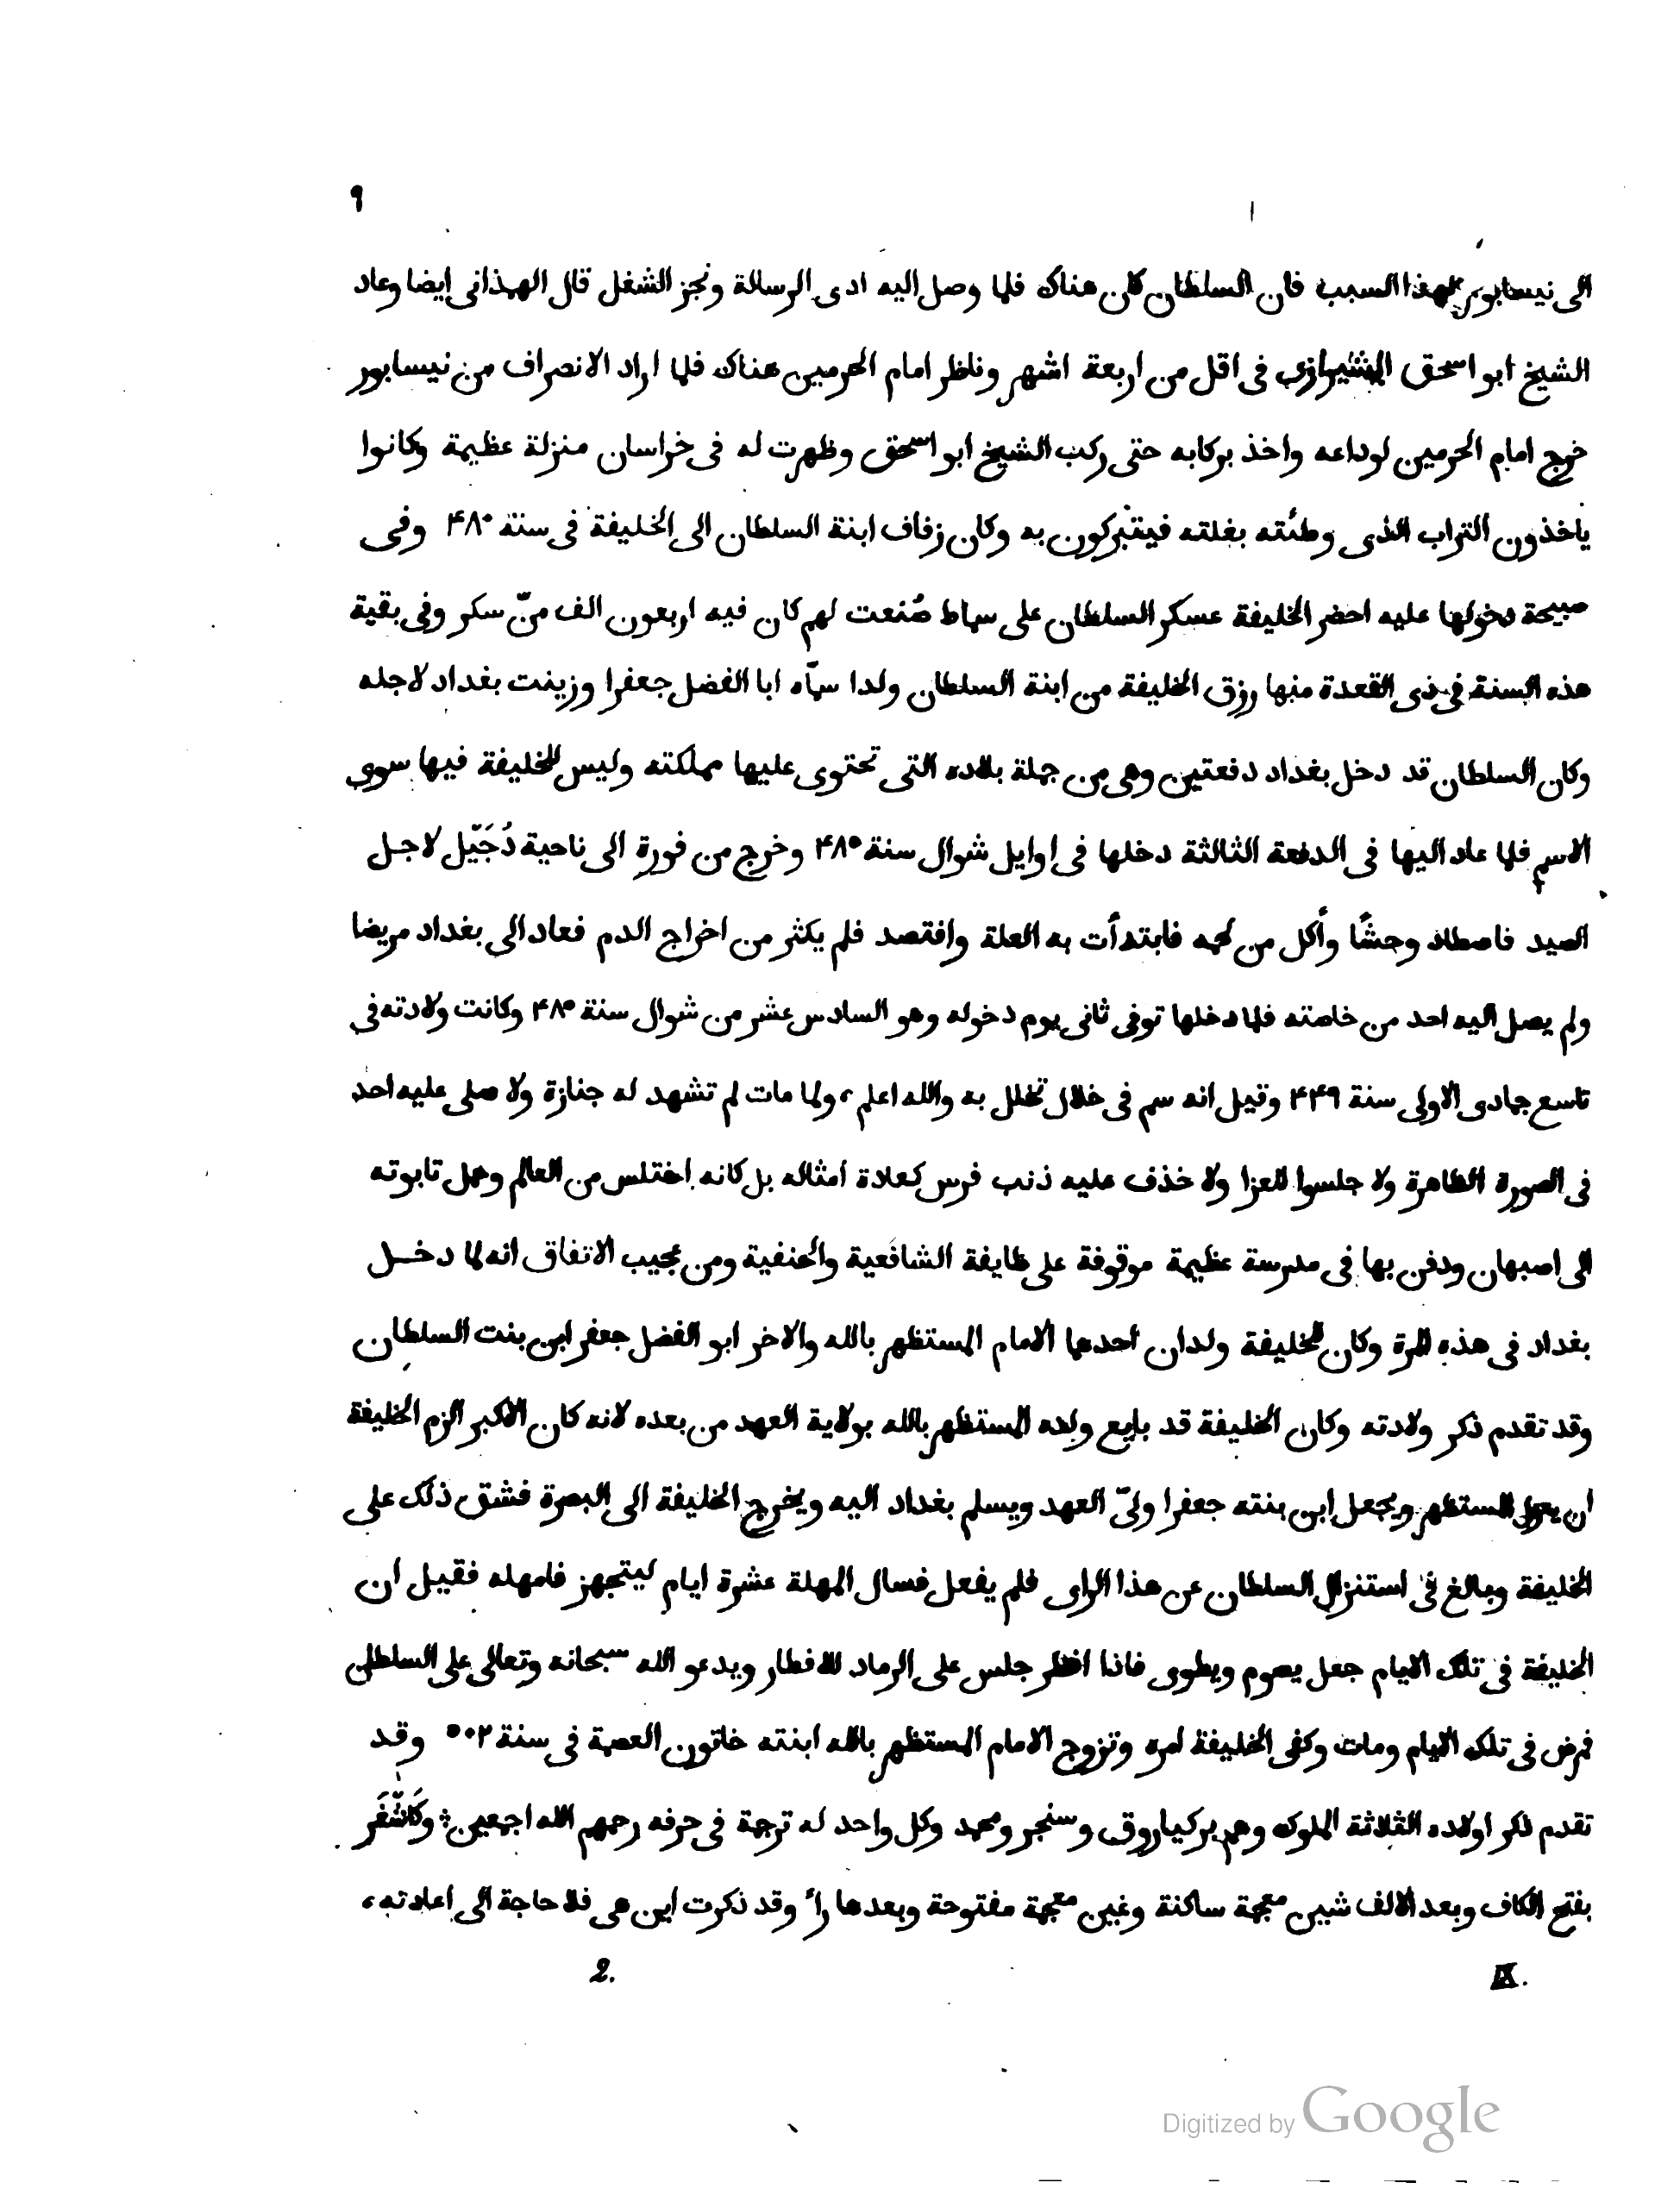 ٩
الى نيسابور لهذا السبب فان السلطان كان هناك فلما وصل اليه ادى الرسالة ونجز الشغل قال الهمذانى ايضا وعاد
الشيخ ابو اسحق الشيرازى فى اقل من اربعة اشهر وناظر امام الحرمين هناك فلما اراد الانصراف من نيسابور
خرج امام الحرمين لوداعه واخذ بركابه حتى ركب الشيخ ابو اسحق وظهرت له فى خراسان منزلة عظيمة وكانوا
ياخذون التراب الذى وطئته بغلته فيتبركون به وكان زفاف ابنة السلطان الى الخليفة فى سنة ۴۸۰ وفى
صبيحة دخولها عليه احضر الخليفة عسكر السلطان على سماط صُنعت لهم كان فيه اربعون الف منّ سكر وفى بقية
هذه السنة فى ذى القعدة منها رزق الخليفة من ابنة السلطان ولدا سمّاه ابا الفضل جعفرا وزينت بغداد لاجله
وكان السلطان قد دخل بغداد دفعتين وهى من جملة بلاده التى تحتوى عليها مملكته وليس للخليفة فيها سوى
الاسم فلما عاد اليها فى الدفعة الثالثة دخلها فى اوايل شوال سنة ۴۸۵ وخرج من فورة الى ناحية دُجَيّل لاجل
الصيد فاصطاد وحشًا وأكل من لحمه فابتدأت به العلة وافتصد فلم يكثر من اخراج الدم فعاد الى بغداد مريضا
ولم يصل اليه احد من خاصته فلما دخلها توفى ثانى يوم دخوله وهو السادس عشر من شوال سنة ۴۸۵ وكانت ولادته فى
تاسع جمادى الاولى سنة ۴۴۹ وقيل انه سم فى خلال تخلل به والله اعلم، ولما مات لم تشهد له جنازة ولا صلى عليه احد
فى الصورة الظاهرة ولا جلسوا للعزا ولا خذف عليه ذنب فرس كعادة امثاله بل كانه اختلس من العالم وحمل تابوته
الى اصبهان ودفن بها فى مدرسة عظيمة موقوفة على طايفة الشافعية والحنفية ومن عجيب الاتفاق انه لما دخل
بغداد فى هذه المرة وكان للخليفة ولدان احدهما الامام المستظهر بالله والاخر ابو الفضل جعفر ابن بنت السلطان
وقد تقدم ذكر ولادته وكان الخليفة قد بايع ولده المستظهر بالله بولاية العهد من بعده لانه كان الاكبر الزم الخليفة
ان يعزل المستظهر ويجعل ابن بنته جعفرا ولىّ العهد ويسلم بغداد اليه ويخرج الخليفة الى البصرة فشق ذلك على
الخليفة وبالغ فى استنزال السلطان عن هذا الراى فلم يفعل فسال المهلة عشرة ايام ليتجهز فامهله فقيل ان
الخليفة فى تلك الايام جعل يصوم ويطوى فاذا افطر جلس على الرماد للافطار ويدعو الله سبحانه وتعالى على السلطان
فمرض فى تلك الايام ومات وكفى الخليفة امره وتزوج الامام المستظهر بالله ابنته خاتون العصمة فى سنة ۵۰۲ وقد
تقدم ذكر اولاده الثلاثة الملوك وهم بركياروق وسنجر ومحمد وكل واحد له ترجمة فى حرفه رحمهم الله اجمعين؛ وكَاشْغَر
بفتح الكاف وبعد الالف شين معجمة ساكنة وغين معجمة مفتوحة وبعدها رأ وقد ذكرت اين هى فلا حاجة الى اعادته،
IX. 2.
Digitized by Google